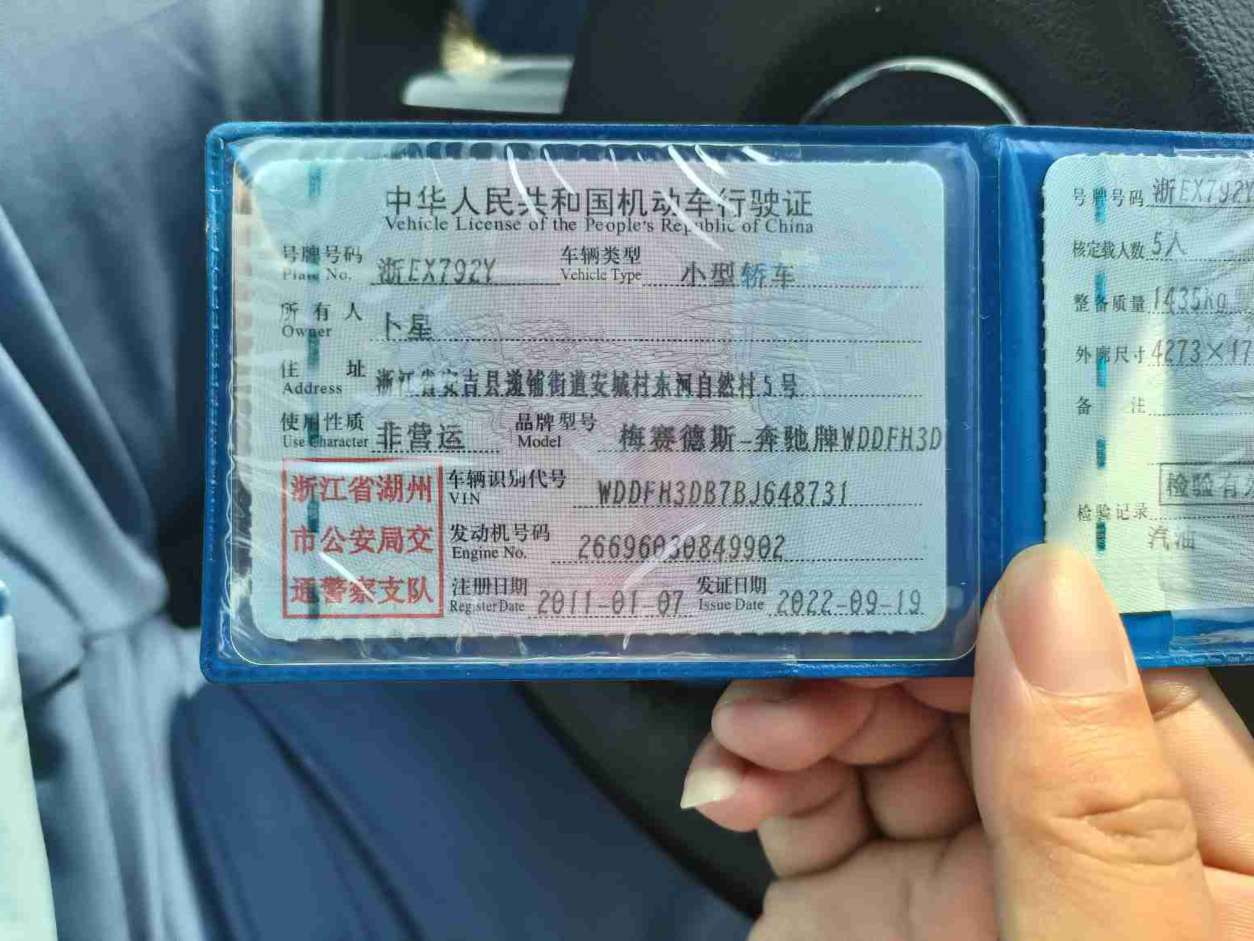 中华人民共和国机动车行驶证
Vehicle License of the People's Republic of China
号牌号码 浙EX792Y 车辆类型 小型轿车
Plate No. Vehicle Type
所有人 卜星
Owner
住址 浙江省安吉县递铺街道安城村东河自然村5号
Address
使用性质 非营运 品牌型号 梅赛德斯-奔驰牌WDDFH3D
Use Character Model
浙江省湖州
市公安局交
通警察支队
车辆识别代号 WDDFH3DB7BJ648731
VIN
发动机号码 26696030849902
Engine No.
注册日期 2011-01-07 发证日期 2022-09-19
Register Date Issue Date
号牌号码 浙EX792Y
核定载人数 5人
整备质量 1435kg
外廓尺寸 4273×17
备注
检验有
检验记录
汽油